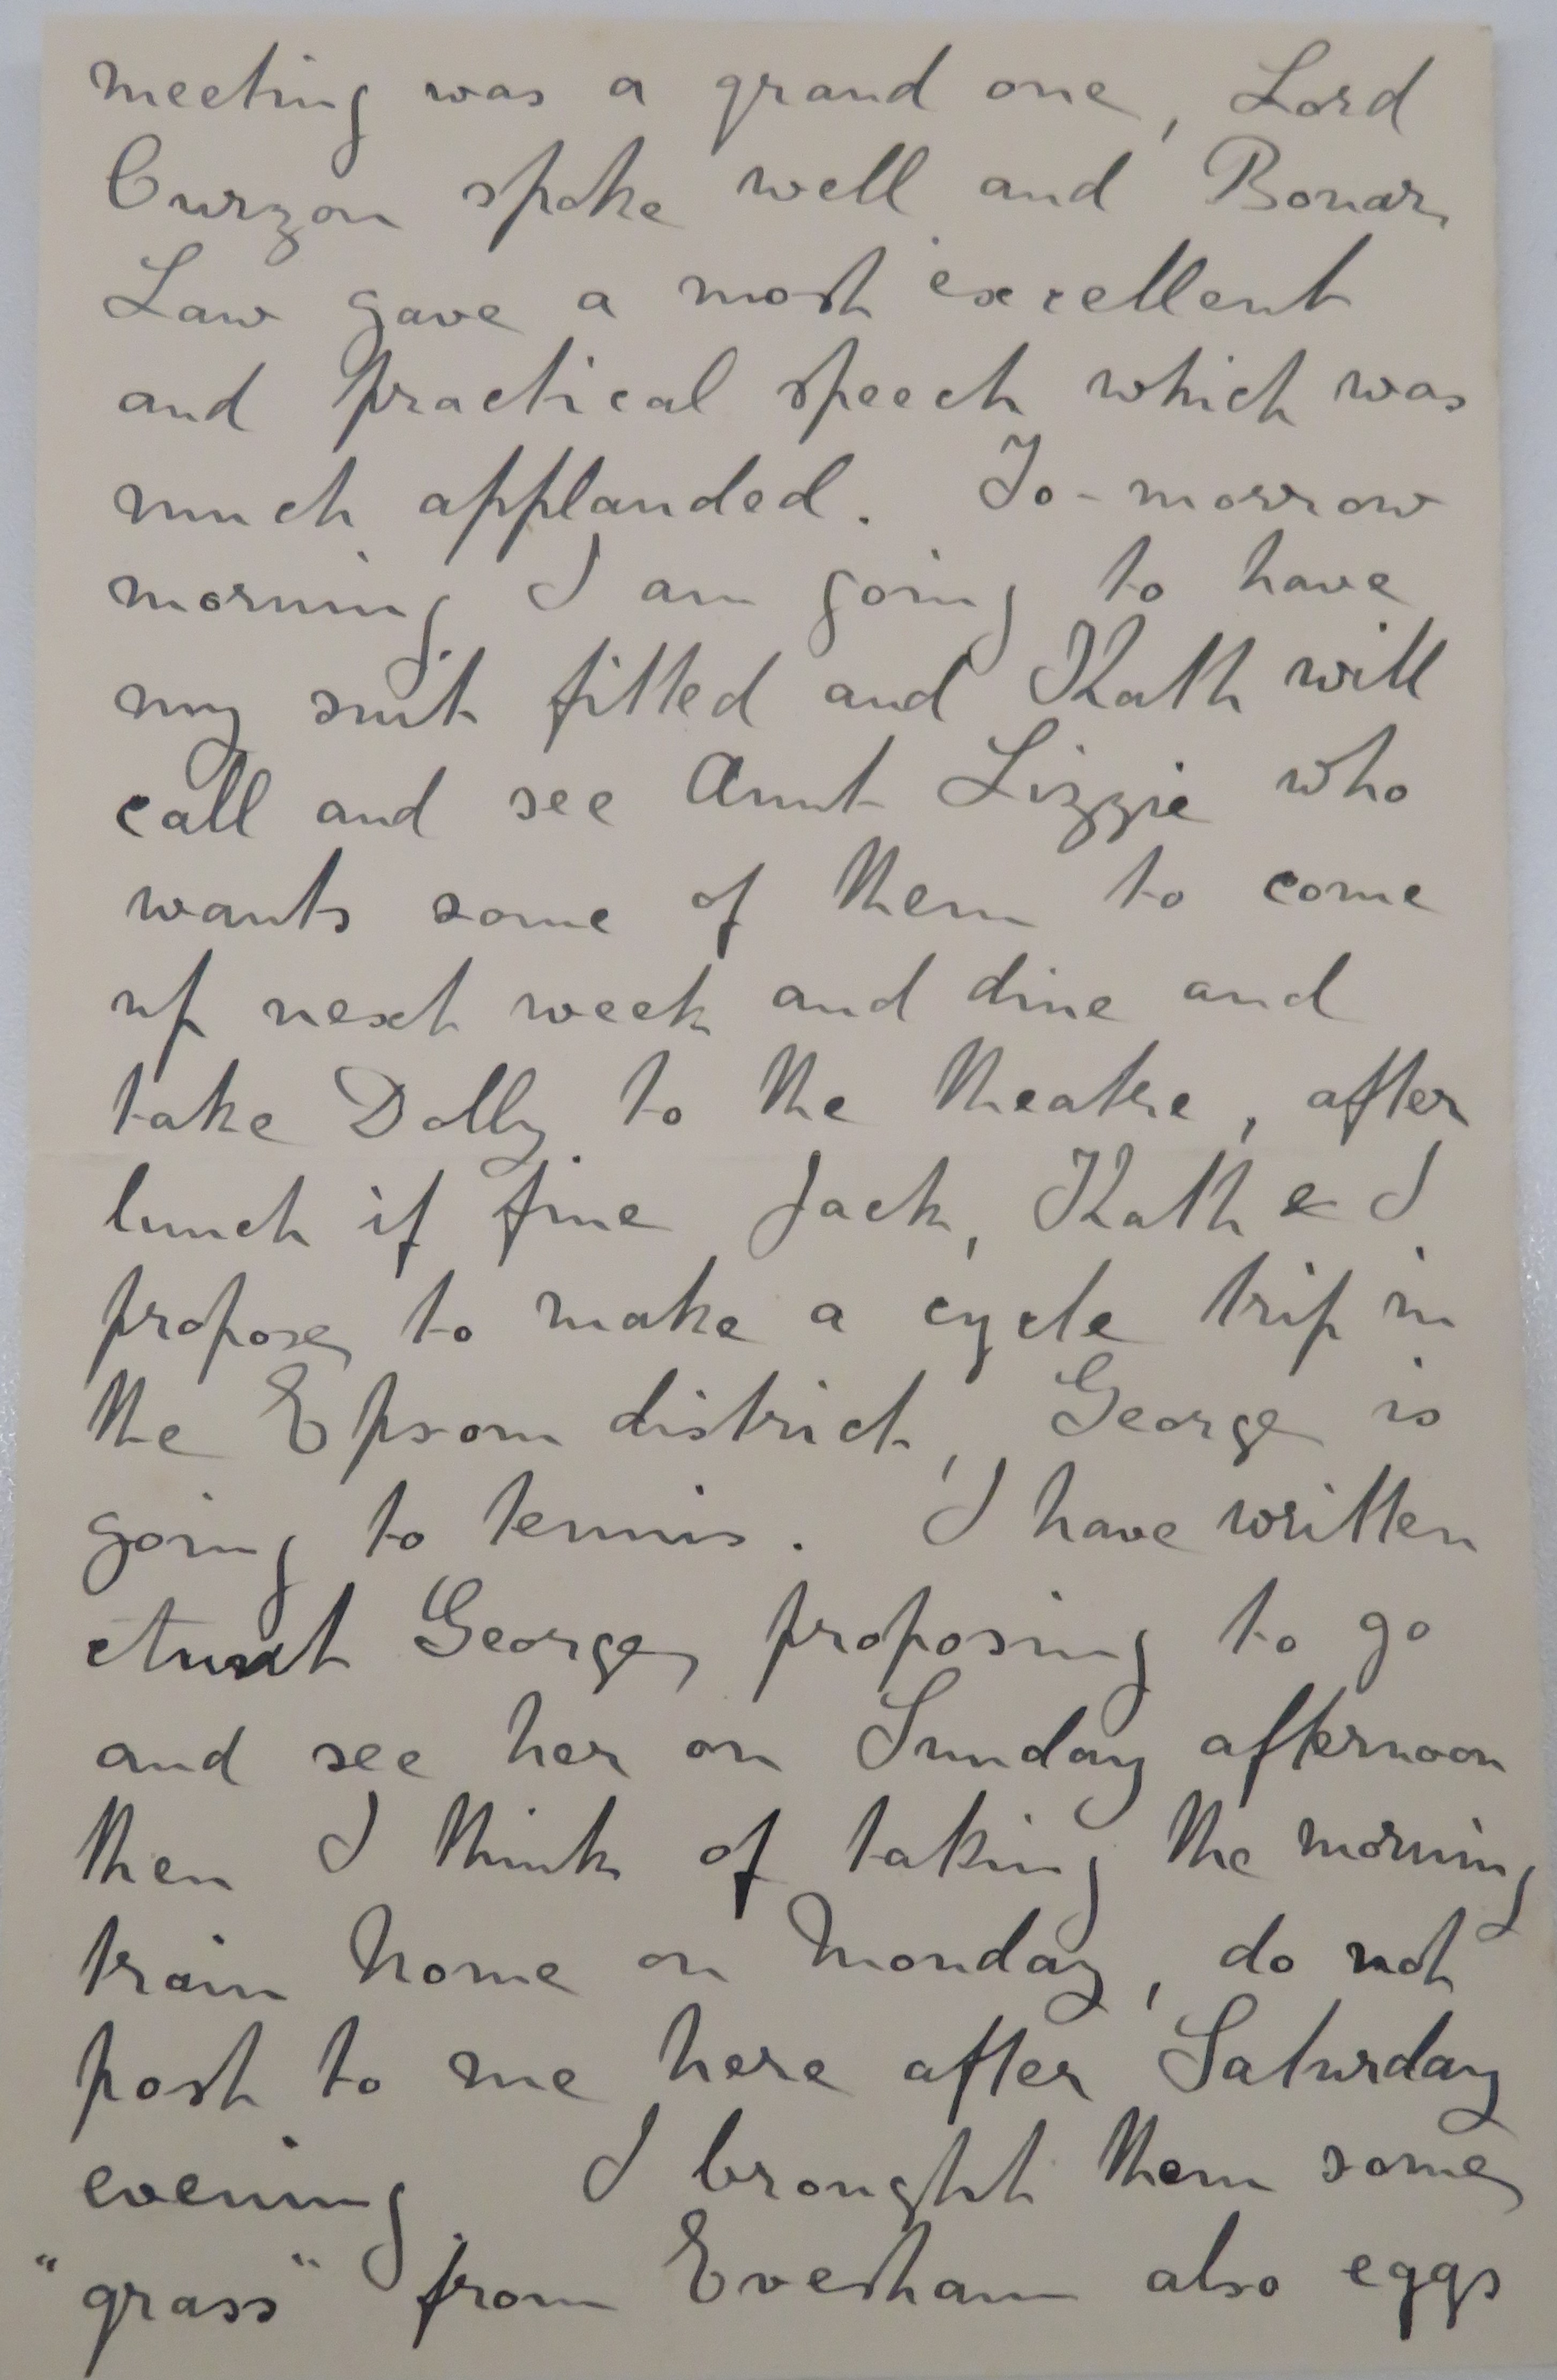 meeting was a grand one, Lord
Curzon spoke well and Bonar
Law gave a most excellent
and practical speech which was
much applauded. To-morrow
morning I am going to have
my suit fitted and Kath will
call and see Aunt Lizzie who
wants some of them to come
up next week and dine and
take Dolly to the theatre, after
lunch if fine Jack, Kath & I
propose to make a cycle trip in
the Epsom district, George is
going to tennis. I have written
Aunt George proposing to go
and see her on Sunday afternoon
then I think of taking the morning
train home on Monday, do not
post to me here after Saturday
evening. I brought them some
"grass" from Evesham also eggs